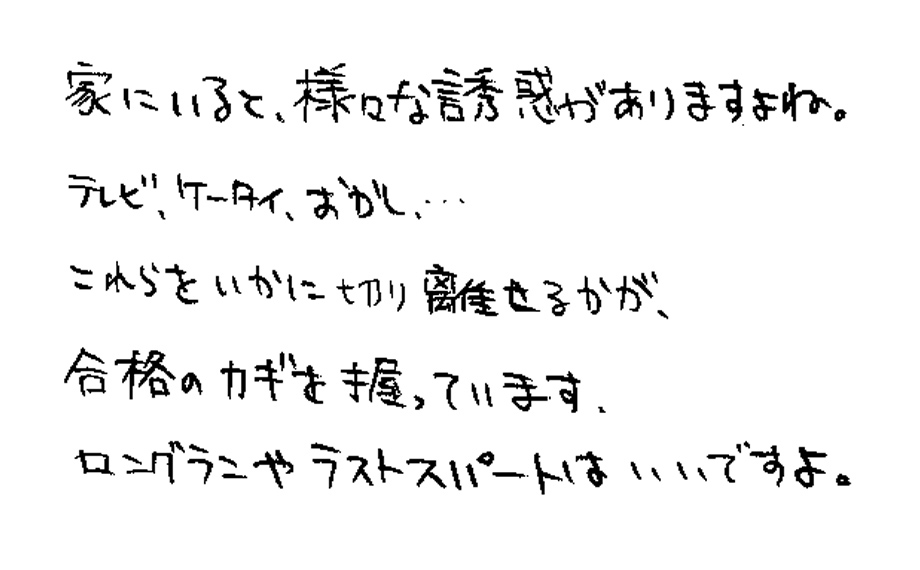 家にいると、様々な誘惑がありますよね。
テレビ、ケータイ、おかし、…
これらをいかに切り離せるかが、
合格のカギを握っています。
ロングランやラストスパートはいいですよ。